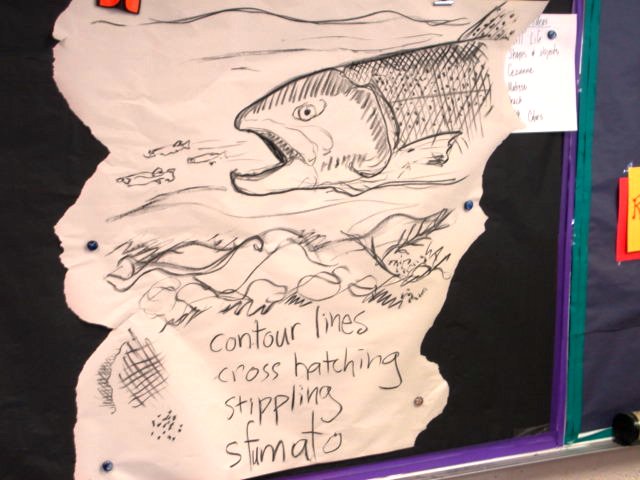 contour lines
cross hatching
stippling
sfumato
Shapes & objects
Cezanne
Matisse